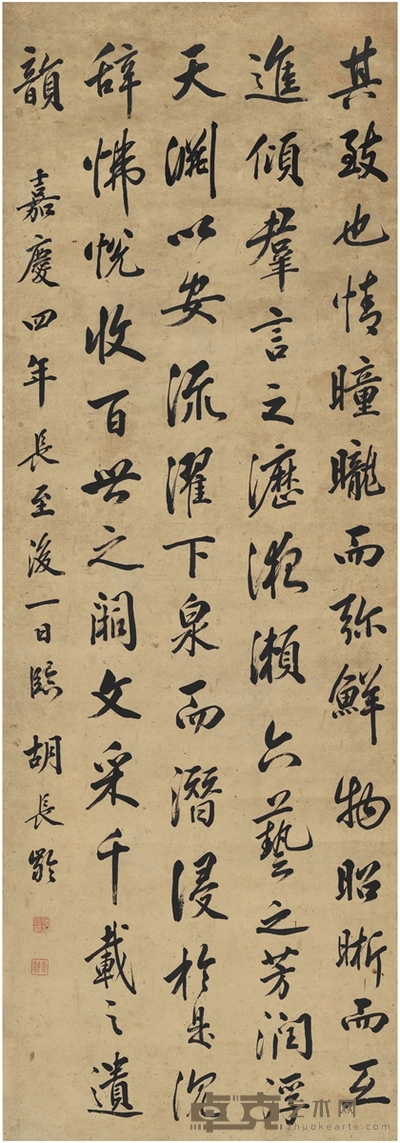 其致也情曈曨而弥鮮物昭晰而互
進傾羣言之瀝液漱六藝之芳潤浮
天淵以安流濯下泉而潛浸於是沉
辭怫悅收百世之闕文采千載之遺
韻 嘉慶四年長至後一日臨 胡長齡
卓克艺术网
zhuokearts.com